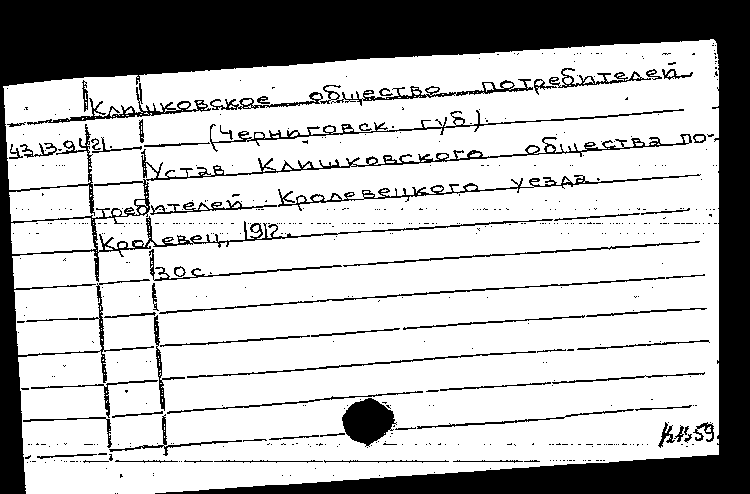 Клишковское общество потребителей
(Черниговск. губ.).
43.13.9421.
Устав Клишковского общества по-
требителей Кролевецкого уезда.
Кролевец, 1912.
30 с.